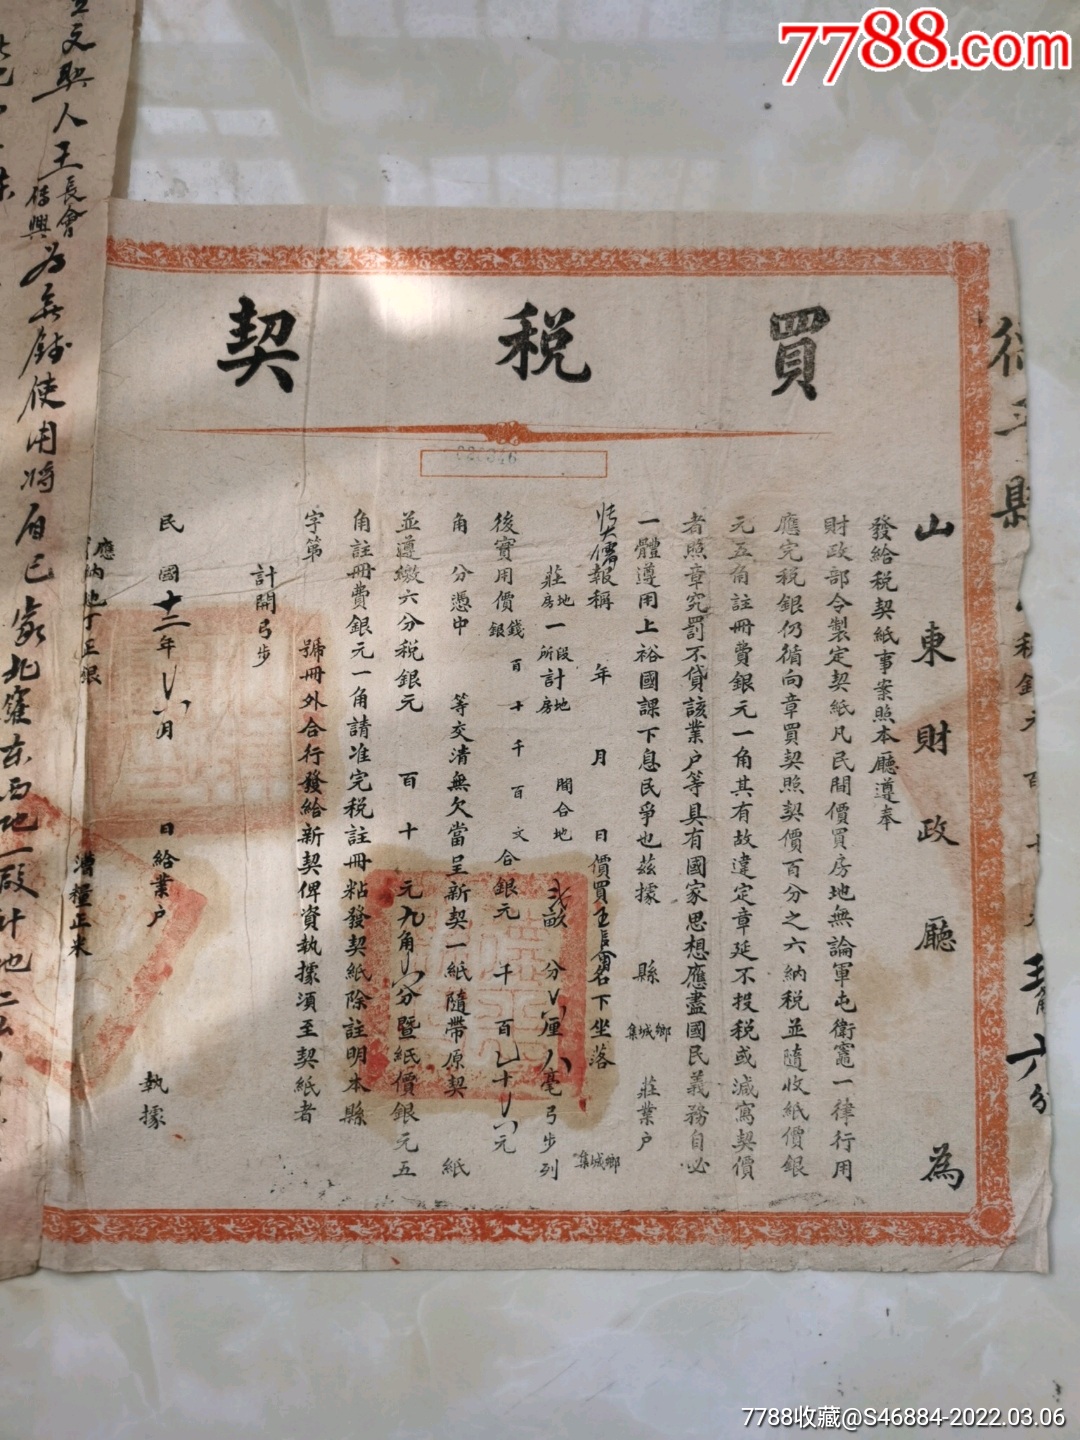 7788.com
買稅契
山東財政廳為
發給稅契紙事案照本廳遵奉
財政部令製定契紙凡民間價買房地無論軍屯衛竈一律行用
應完稅銀仍循向章買契照契價百分之六納稅並隨收紙價銀
元五角註冊費銀元一角其有故違定章延不投稅或減寫契價
者照章究罰不貸該業戶等具有國家思想應盡國民義務自必
一體遵用上裕國課下息民爭也茲據 縣 鄉城集 莊業戶
報稱 年 月 日價買王長會名下坐落 鄉城集
莊 地房 一 段所 計 地房 間合地 弍畝 分 厘 毫弓步列
後實用價 錢銀 百 十 千 百 文 合銀元 千 百 十 元
角 分憑中 等交清無欠當呈新契一紙隨帶原契 紙
並遵繳六分稅銀元 百 十 元九角 分暨紙價銀元五
角註冊費銀元一角請准完稅註冊粘發契紙除註明本縣
字第 號冊外合行發給新契俾資執據須至契紙者
計開弓步
民國十三年 月 日給業戶 執據
應納地丁正銀 漕糧正米
立文契人王長會 為無錢使用將自己家北窪東西地一段計地二
7788收藏@S46884-2022.03.06